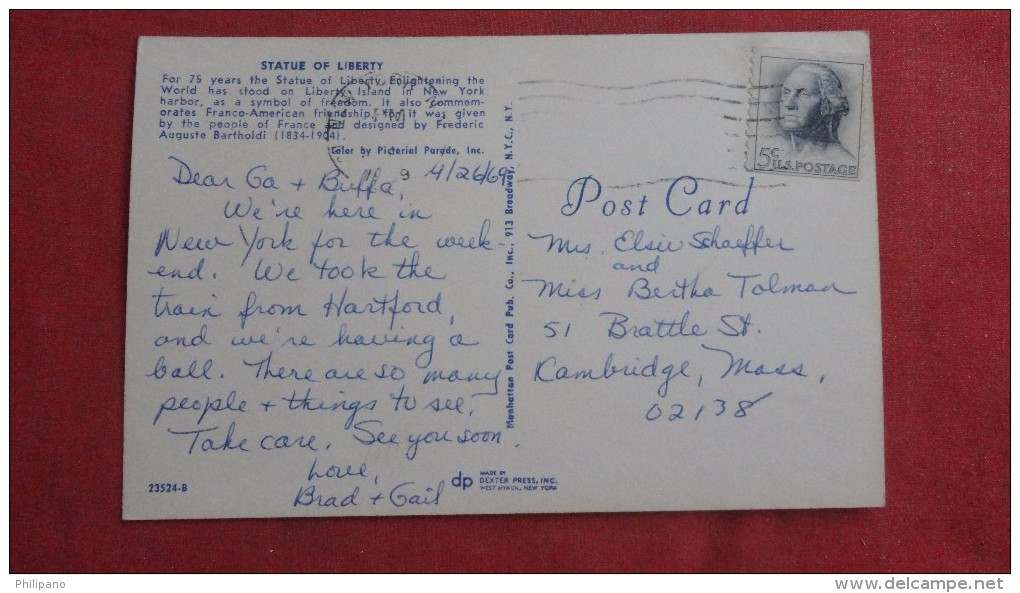 STATUE OF LIBERTY
For 75 years the Statue of Liberty Enlightening the
World has stood on Liberty Island in New York
harbor, as a symbol of freedom. It also commem-
orates Franco-American friendship, for it was given
by the people of France and designed by Frederic
Auguste Bartholdi (1834-1904).
Color by Pictorial Parade, Inc.
4/26/69
Dear Ga + Buffa,
We're here in
New York for the week-
end. We took the
train from Hartford,
and we're having a
ball. There are so many
people + things to see.
Take care. See you soon.
Love,
Brad + Gail
23524-B
Manhattan Post Card Pub. Co., Inc., 913 Broadway, N.Y.C., N.Y.
dp MADE BY
DEXTER PRESS, INC.
WEST NYACK, NEW YORK
5¢ U.S. POSTAGE
Post Card
Mrs. Elsie Schaeffer
and
Miss Bertha Tolman
51 Brattle St.
Kambridge, Mass,
02138
Philipano
www.delcampe.net